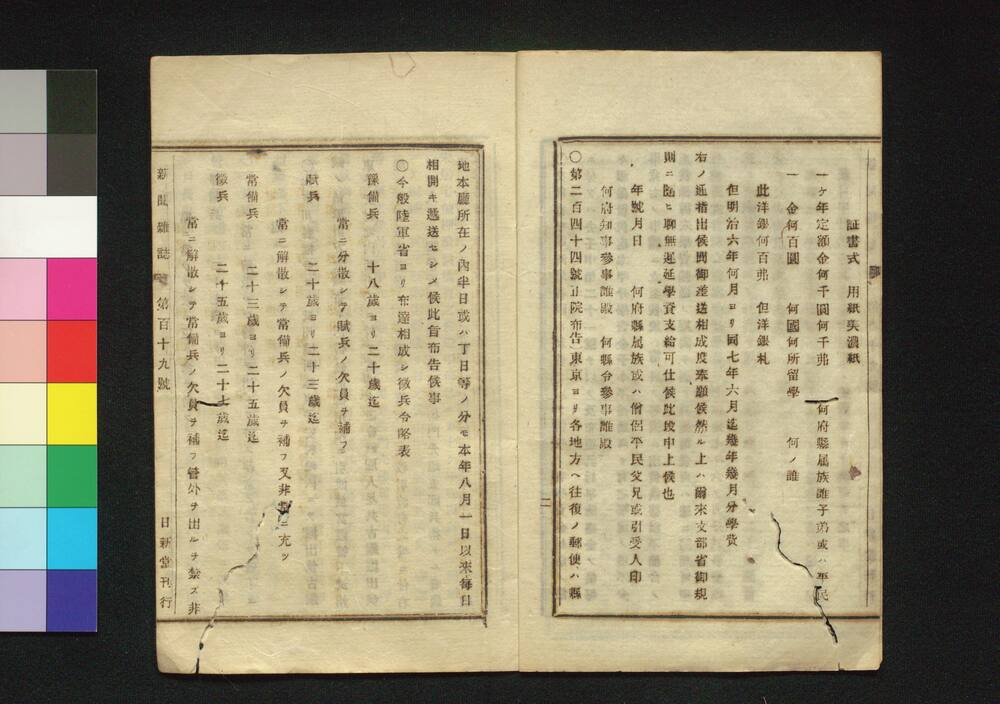 証書式　用紙美濃紙
一ケ年定額金何千圓何千弗　何府縣属族誰子弟或ハ平民
一　金何百圓　何國何所留學　何ノ誰
此洋銀何百弗　但洋銀札
但明治六年何月ヨリ同七年六月迄幾年幾月分學費
右ノ通指出候間御差送相成度奉願候然ル上ハ爾來文部省御規
則ニ随ヒ聊無遅延學資支給可仕候此段申上候也
年號月日　何府縣属族或ハ僧侶平民父兄或引受人印
何府知事参事誰殿　何縣令参事誰殿
〇第二百四十四號正院布告東京ヨリ各地方ヘ往復ノ郵便ハ縣
二
地本廳所在ノ内半日或ハ丁日等ノ分モ本年八月一日以來毎日
相開キ遞送セシメ候此旨布告候事
〇今般陸軍省ヨリ布達相成シ徴兵令略表
豫備兵　十八歳ヨリ二十歳迄
常ニ分散シテ賦兵ノ欠員ヲ補フ
賦兵　二十歳ヨリ二十三歳迄
常ニ解散シテ常備兵ノ欠員ヲ補フ又非常ニ充ツ
常備兵　二十三歳ヨリ二十五歳迄
徴兵　二十五歳ヨリ二十七歳迄
常ニ解散シテ常備兵ノ欠員ヲ補フ管外ヲ出ルヲ禁ズ非
新聞雜誌　第百十九號　日新堂刊行